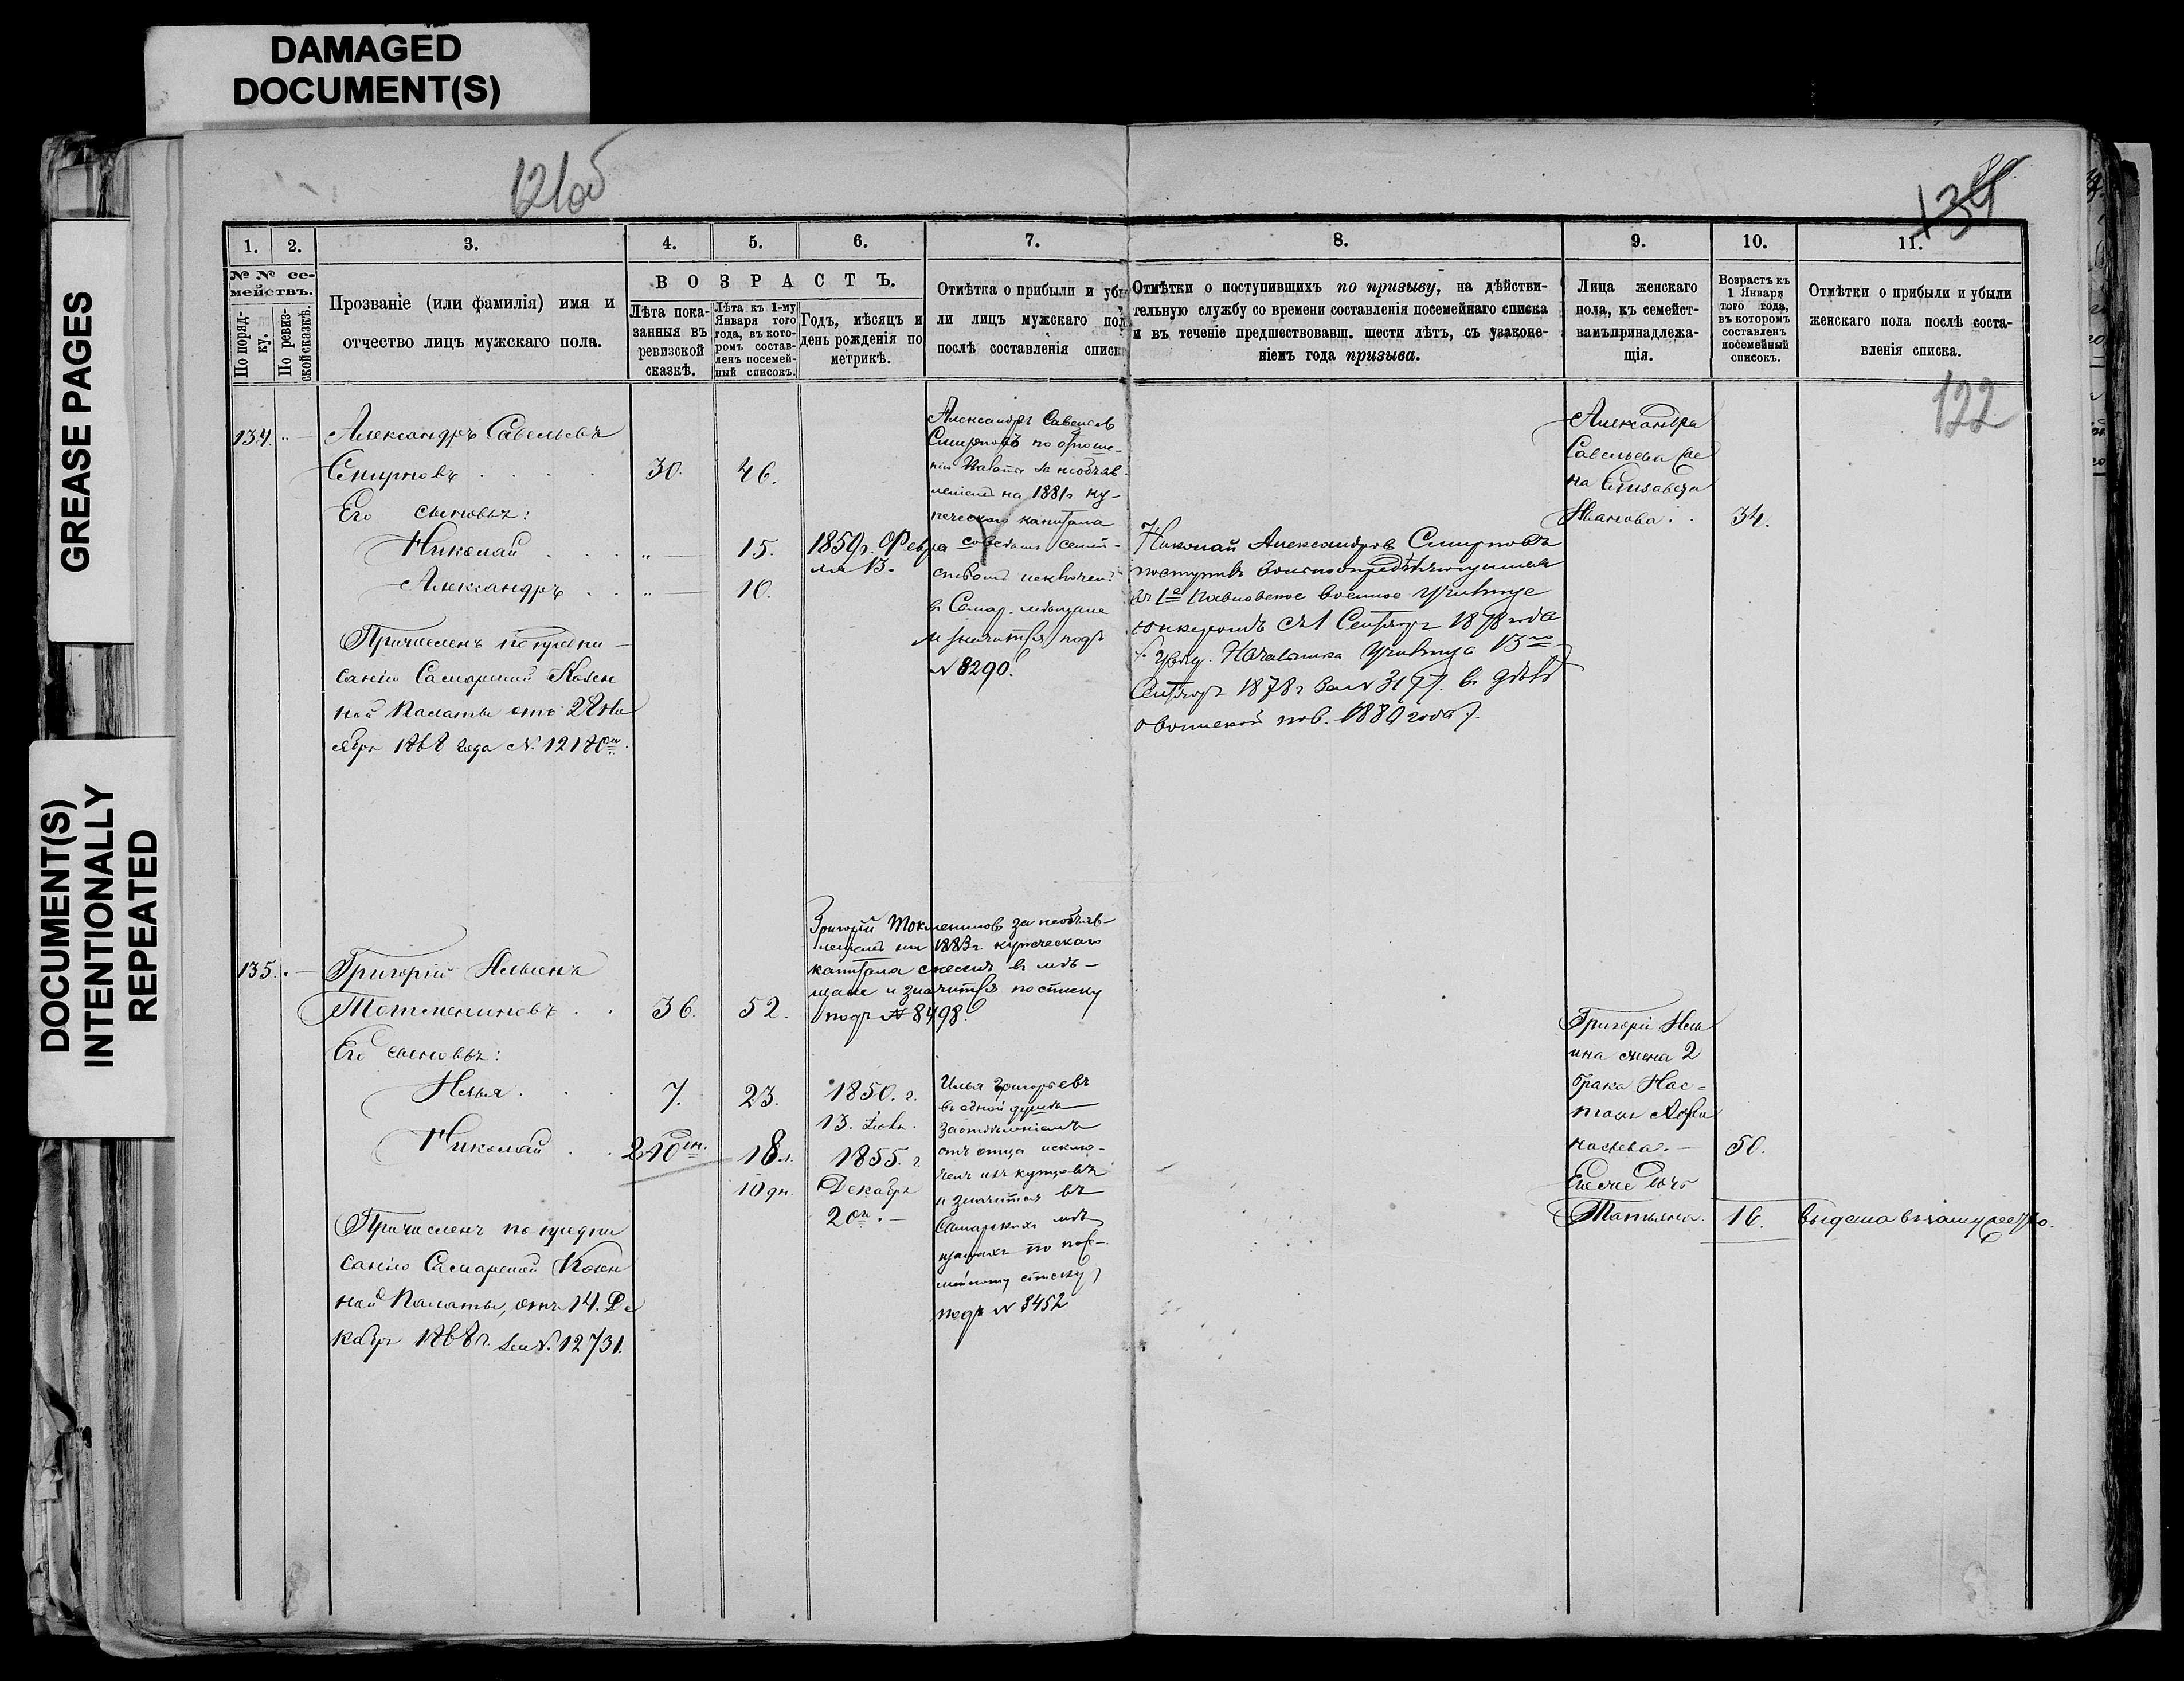 DAMAGED
DOCUMENT(S)
GREASE PAGES
DOCUMENT(S)
INTENTIONALLY
REPEATED
121об
134
122
1.
2.
3.
4.
5.
6.
7.
8.
9.
10.
11.
№ № се-
мействъ.
По поряд-
ку.
По ревиз-
ской сказкѣ.
Прозваніе (или фамилія) имя и
отчество лицъ мужскаго пола.
ВОЗРАСТЪ.
Лѣта пока-
занныя въ
ревизской
сказкѣ.
Лѣта къ 1-му
Января того
года, въ кото-
ромъ состав-
ленъ посемей-
ный списокъ.
Годъ, мѣсяцъ и
день рожденія по
метрикѣ.
Отмѣтка о прибыли и убы
ли лицъ мужскаго пол
послѣ составленія списк
Отмѣтки о поступившихъ по призыву, на дѣйстви-
тельную службу со времени составленія посемейнаго списка
и въ теченіе предшествовавш. шести лѣтъ, съ узаконе-
ніемъ года призыва.
Лица женскаго
пола, къ семейст-
вамъ принадлежа-
щія.
Возрастъ къ
1 Января
того года,
въ которомъ
составленъ
посемейный
списокъ.
Отмѣтки о прибыли и убыли
женскаго пола послѣ соста-
вленія списка.
134. Александръ Савельевъ
Смирновъ 30. 46.
Его сыновья:
Николай 15. 1859 г. Февра
ля 13.
Александръ 10.
Причисленъ по предпи-
санію Самарской Казен
ной Палаты отъ 28 Но
ября 1868 года № 12170
Александръ Савельев
Смирновъ по отноше-
нію Палаты за необъяв
леніемъ на 1881 г. ку-
печескаго капитала
со всѣмъ семей-
ствомъ исключенъ
в Самар. мѣщане
и значится подъ
№ 8290.
Николай Александров Смирновъ
поступилъ вольноопредѣляющимся
въ 1е Павловское военное училище
юнкеромъ съ 1 Сентяб. 1878 года
Начальника Училища 13го
Сентяб. 1878 г. за № 3177. в дѣлѣ
о воинской пов. 1880 года).
Александра
Савельева же
на Елизавета
Иванова 34.
135. Григорій Ильинъ
Токмениновъ 36. 52.
Его сыновья:
Илья 7. 23. 1850. г.
13. Іюля.
Николай 18 л. 1855. г.
10 дн. Декабря
20го.
Причисленъ по предпи
санію Самарской Казен
ной Палаты, отъ 14. Де
кабря 1868 г. за № 12731.
Григорій Токменинов за необъяв-
леніемъ на 1883 г. купеческаго
капитала в мѣ-
щане и значится по списку
подъ № 8498.
Илья Григорьевъ
въ одной душѣ
за отдѣленіемъ
отъ отца исклю-
ченъ изъ купцовъ
и значится въ
Самарскихъ мѣ
щанахъ по посе-
мейному списку
подъ № 8452
Григорія Иль
ина жена 2
брака Нас-
тасья Афа
насьева. 50.
Ея же дочь
Татьяна. 16. Выдана въ замужество.